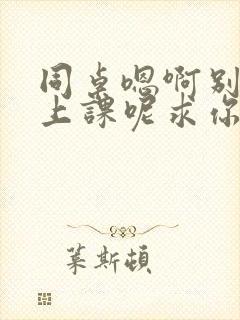 同桌嗯啊别
上課呢求你
葉斯頓